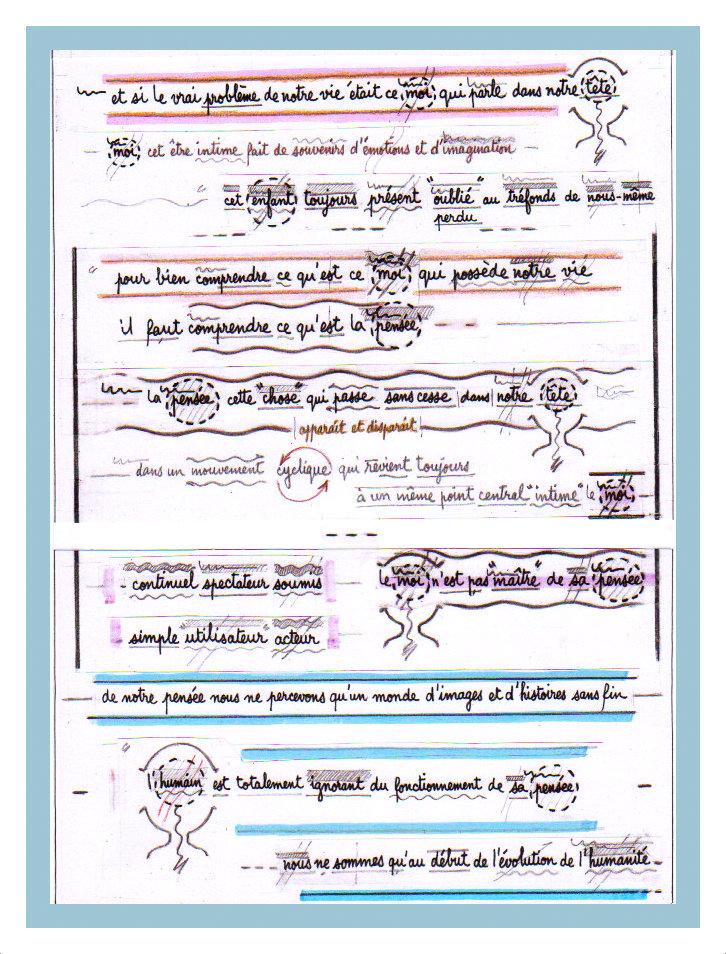 et si le vrai problème de notre vie était ce moi qui parle dans notre tête
moi cet être intime fait de souvenirs d'émotions et d'imagination
" cet enfant toujours présent "oublié" au tréfonds de nous-même
perdu
" pour bien comprendre ce qu'est ce moi qui possède notre vie
il faut comprendre ce qu'est la pensée
la pensée cette "chose" qui passe sans cesse dans notre tête
apparaît et disparaît
dans un mouvement cyclique qui revient toujours
à un même point central "intime" le moi
continuel spectateur soumis
le moi n'est pas "maître" de sa pensée
simple "utilisateur" acteur
de notre pensée nous ne percevons qu'un monde d'images et d'histoires sans fin
" l'humain est totalement ignorant du fonctionnement de sa pensée
nous ne sommes qu'au début de l'évolution de l'humanité